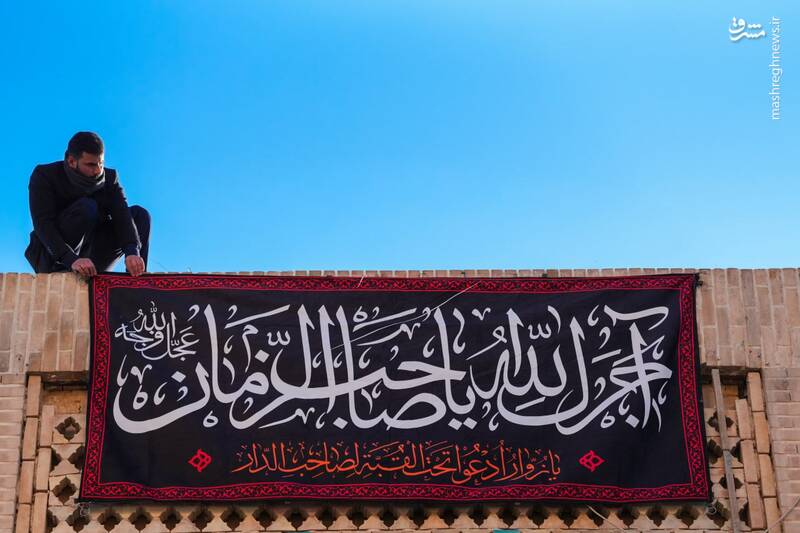 مشرق
mashreghnews.ir
آجرك الله يا صاحب الزمان
عجل الله فرجه
يا زوار أدعوا تحت القبة لصاحب الدار